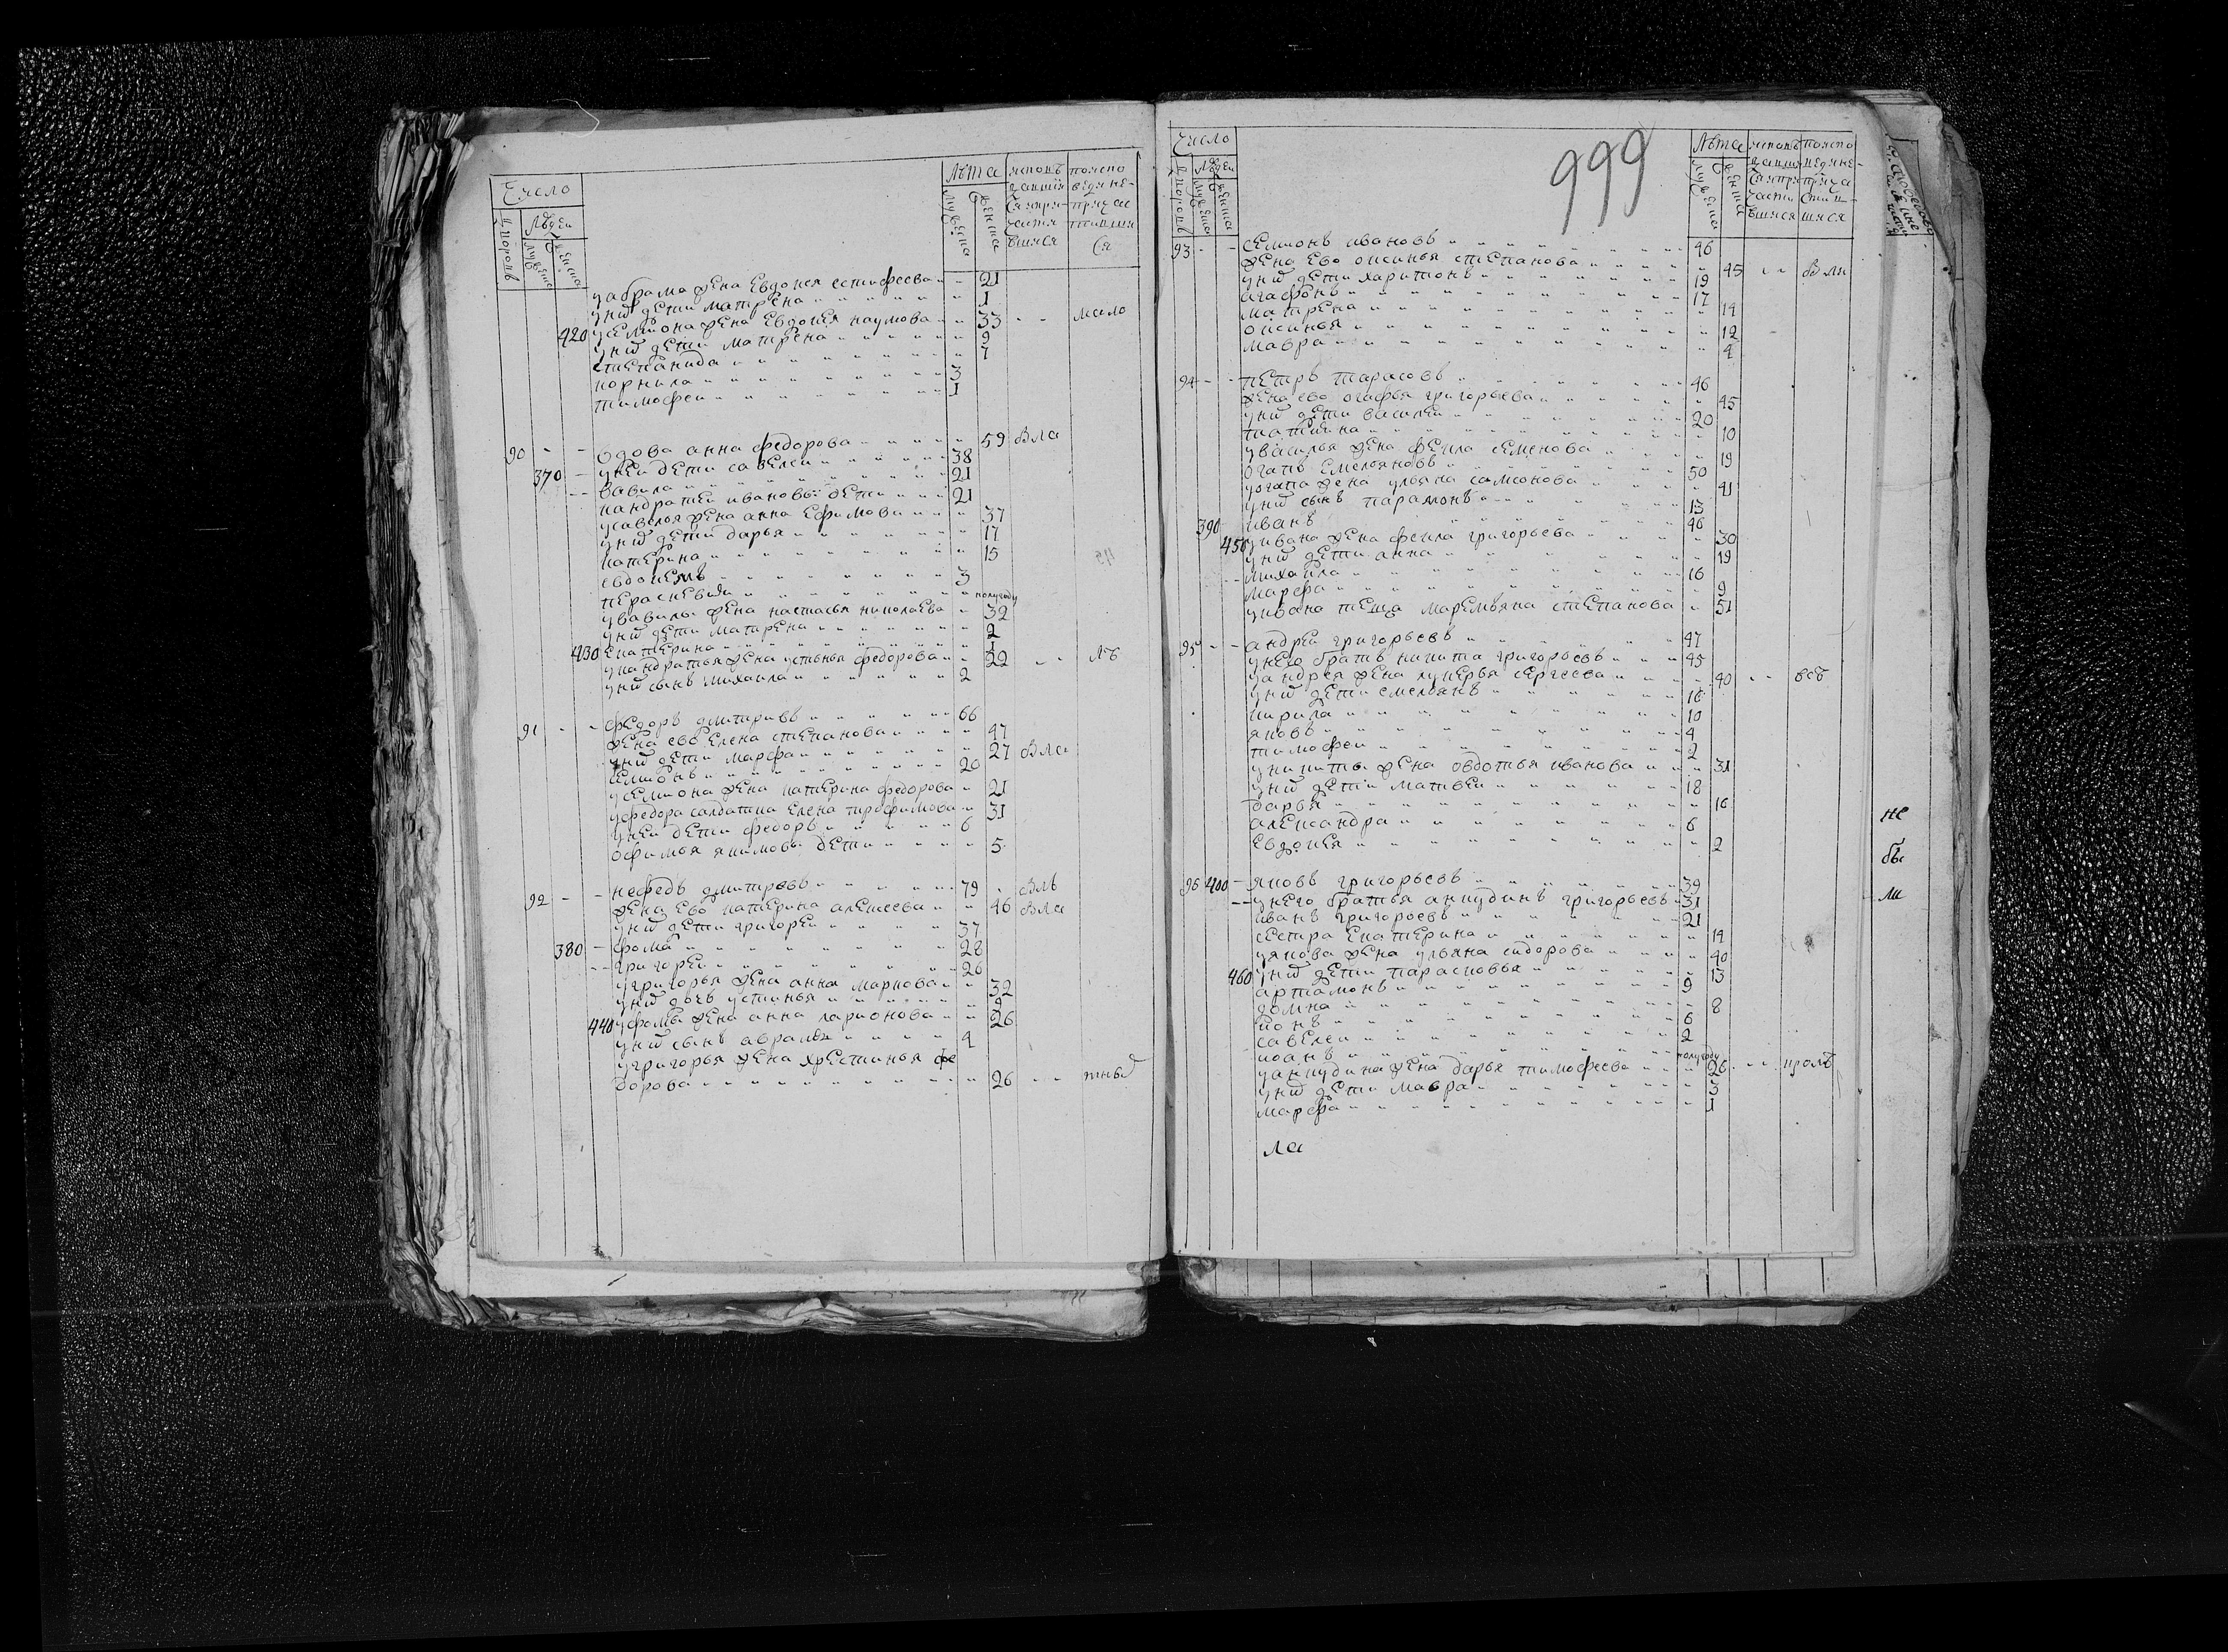 Число
Лѣта
Людеи
у абрама жена Евдокея естифеева 21
унихъ дети Матрена 1
420 у семиона жена Евдокея наумова 33 мало
унихъ дети Матрена 9
степанида 7
корнила 3
тимофеи 1
90 вдова анна федорова 59 Вла
370 унеи дети савелеи 38
вавила 21
кандратеи ивановы дети 21
у савелья жена анна Ефимова 37
унихъ дети дарья 17
катерина 15
евдокемъ 3
пераскевия полугоду
у вавилы жена настасья николаева 32
унихъ дети матрена 2
430 Екатерина 1
у кандратья жена устинья федорова 22 лъ
унихъ сынъ михаила 2
91 федоръ дмитривъ 66
жена ево Елена степанова 47
унихъ дети марфа 27 Вла
семионъ 20
у семиона жена катерина федорова 21
у федора салдатка Елена трофимова 31
унеи дети федоръ 6
офимья якимовы дети 5
92 нефедъ дмитревъ 79 Влъ
жена Ево катерина алексеева 46 Вла
унихъ дети григореи 37
380 фома 28
григореи 26
у григорья жена анна маркова 32
унихъ дочь устинья 9
440 у фомы жена анна ларионова 26
унихъ сынъ аврамъ 4
у григорья жена хрестинья фе
дорова 26 тныхъ
999
Число
Людеи
Лѣта
93 семионъ ивановъ 46
жена Ево оксинья степанова 45 Вли
унихъ дети харитонъ 19
агафонъ 17
матрена 14
оксинья 12
мавра 4
94 петръ тарасовъ 46
жена ево огафья григорьева 45
унихъ дети василеи 20
татияна 10
у василья жена фекла семенова 19
огапъ Емельяновъ 50
у огапа жена ульяна самсонова 41
унихъ сынъ парамонъ 13
390 иванъ 46
450 у ивана жена фекла григорьева 30
унихъ дети анна 19
михаила 16
марфа 9
у ивана теща маремьяна степанова 51
95 андреи григорьевъ 47
унего братъ никита григорьевъ 45
у андрея жена лукерья сергеева 40 всъ
унихъ дети емельянъ 16
кирила 10
яковъ 4
тимофеи 2
у никиты жена овдотья иванова 31
унихъ дети матвеи 18
дарья 16
александра 6
Евдокея 2
96 400 яковъ григорьевъ 39
унего братья анкудинъ григорьевъ 31
иванъ григорьевъ 21
сестра Екатерина 14
у якова жена ульяна сидорова 40
460 унихъ дети парасковья 13
артамонъ 9
домна 8
ионъ 6
савелеи 2
иоанъ полугоду
у анкудина жена дарья тимофеева 26 промъ
унихъ дети мавра 3
марфа 1
ла
не
бы
ли